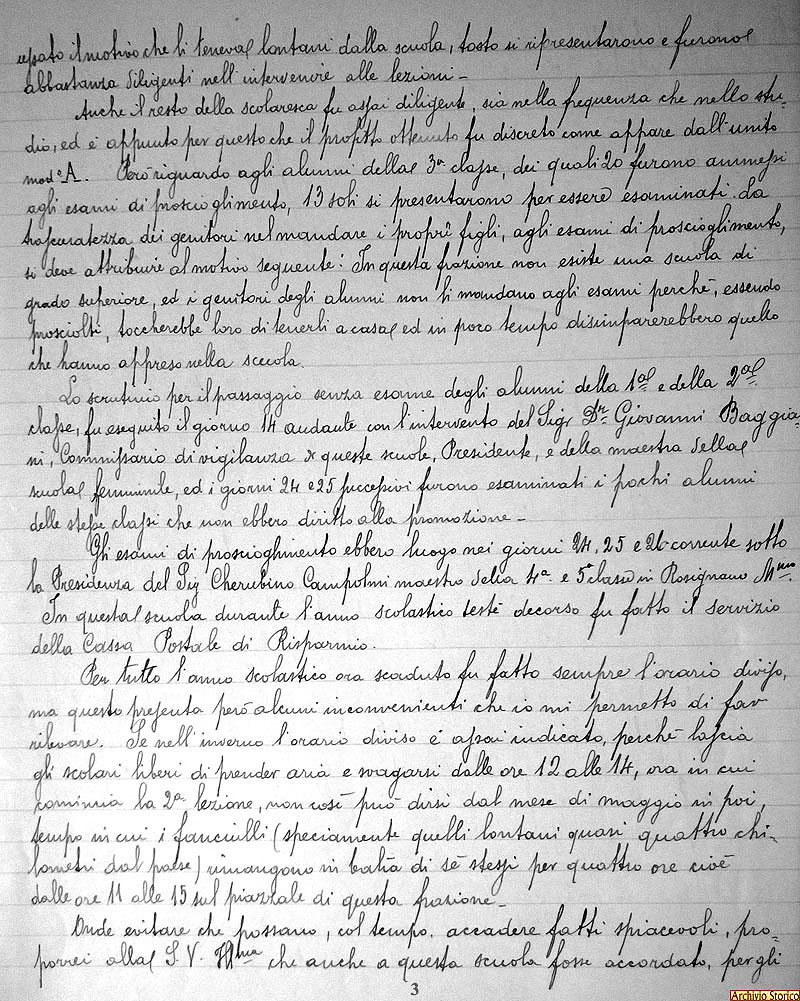 cessato il motivo che li teneva lontani dalla scuola, tosto si ripresentarono e furono
abbastanza diligenti nell'intervenire alle lezioni -
Anche il resto della scolaresca fu assai diligente, sia nella frequenza che nello stu-
dio, ed è appunto per questo che il profitto ottenuto fu discreto come appare dall'unito
mod° A. Però riguardo agli alunni della 3ª classe, dei quali 20 furono ammessi
agli esami di proscioglimento, 13 soli si presentarono per essere esaminati. La
trascuratezza dei genitori nel mandare i proprî figli, agli esami di proscioglimento,
si deve attribuire al motivo seguente: In questa frazione non esiste una scuola di
grado superiore, ed i genitori degli alunni non li mandano agli esami perchè, essendo
prosciolti, toccherebbe loro di tenerli a casa ed in poco tempo disimparerebbero quello
che hanno appreso nella scuola.
Lo scrutinio per il passaggio senza esame degli alunni della 1ª e della 2ª
classe, fu eseguito il giorno 14 andante con l'intervento del Sigr Dr. Giovanni Baggia-
ni, Commissario di vigilanza queste scuole, Presidente, e della maestra della
scuola femminile, ed i giorni 24 e 25 successivi furono esaminati i pochi alunni
delle stesse classi che non ebbero diritto alla promozione -
Gli esami di proscioglimento ebbero luogo nei giorni 24, 25 e 26 corrente sotto
la Presidenza del Sig Cherubino Campolmi maestro della 4ª e 5ª classe in Rosignano Mmo.
In questa scuola durante l'anno scolastico testè decorso fu fatto il servizio
della Cassa Postale di Risparmio.
Per tutto l'anno scolastico ora scaduto fu fatto sempre l'orario diviso,
ma questo presenta però alcuni inconvenienti che io mi permetto di far
rilevare. Se nell'inverno l'orario diviso è assai indicato, perchè lascia
gli scolari liberi di prender aria e svagarsi dalle ore 12 alle 14, ora in cui
comincia la 2ª lezione, non così può dirsi dal mese di maggio in poi,
tempo in cui i fanciulli (speciamente quelli lontani quasi quattro chi-
lometri dal paese) rimangono in balìa di sè stessi per quattro ore cioè
dalle ore 11 alle 15 sul piazzale di questa frazione -
Onde evitare che possano, col tempo, accadere fatti spiacevoli, pro-
porrei alla S. V. Illma che anche a questa scuola fosse accordato, per gli
3
Archivio Storico